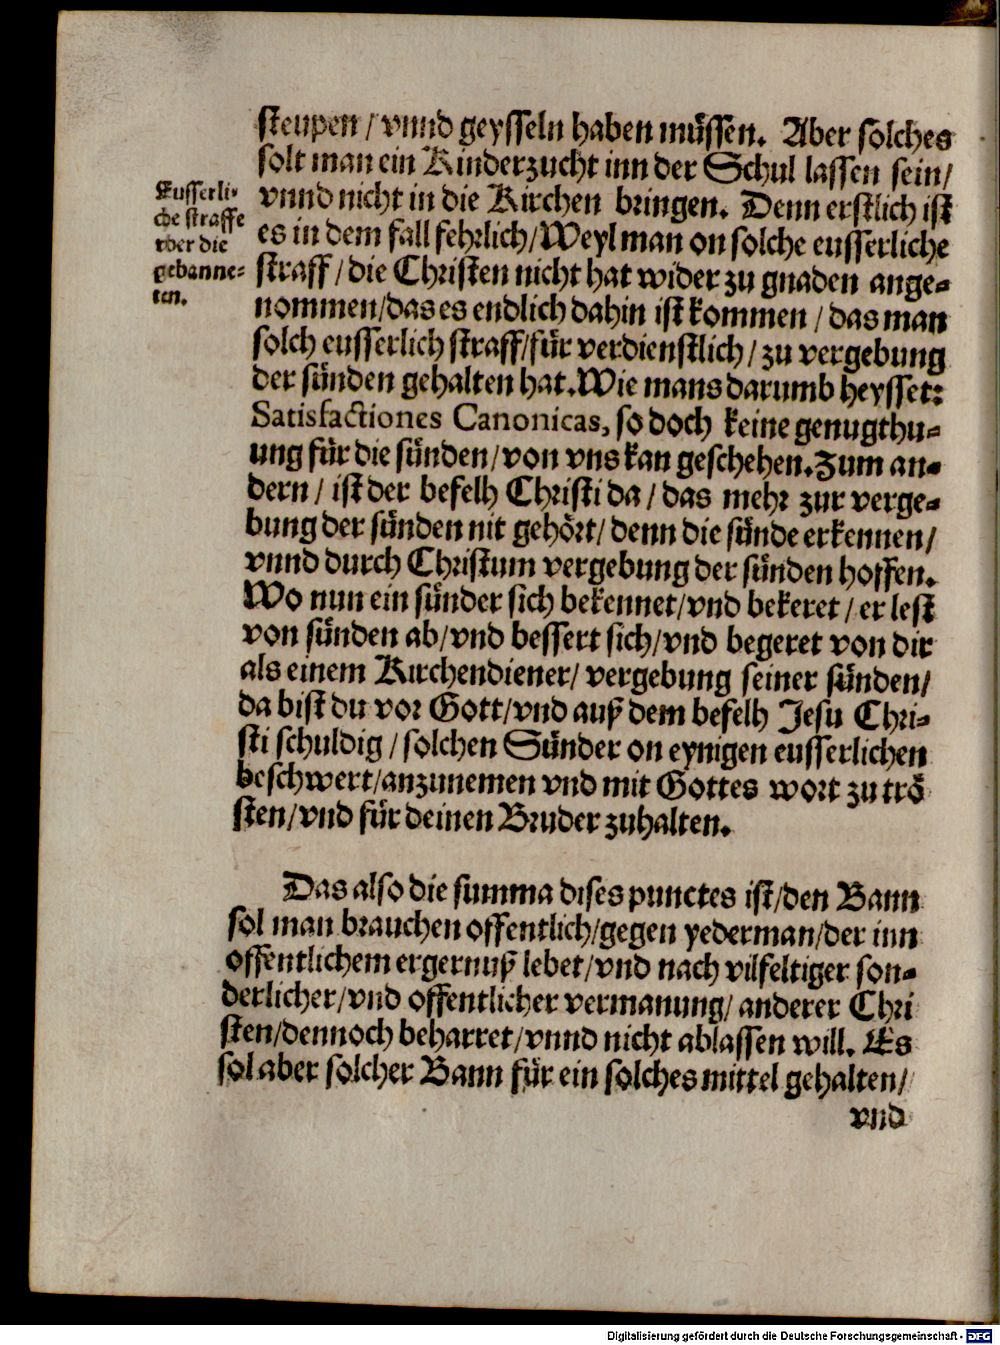 steupen / vnnd geysseln haben müssen. Aber solches
solt man ein Kinderzucht inn der Schul lassen sein /
vnnd nicht in die Kirchen bringen. Denn erstlich ist
es in dem fall fehrlich / Weyl man on solche eusserliche
straff / die Christen nicht hat wider zu gnaden ange-
nommen / das es endlich dahin ist kommen / das man
solch eusserlich straff / für verdienstlich / zu vergebung
der sünden gehalten hat. Wie mans darumb heysset:
Satisfactiones Canonicas, so doch keine genugthu-
ung für die sünden / von vns kan geschehen. Zum an-
dern / ist der befelh Christi da / das mehr zur verge-
bung der sünden nit gehört / denn die sünde erkennen /
vnnd durch Christum vergebung der sünden hoffen.
Wo nun ein sünder sich bekennet / vnd bekeret / er lest
von sünden ab / vnd bessert sich / vnd begeret von dir
als einem Kirchendiener / vergebung seiner sünden /
da bist du vor Gott / vnd auß dem befelh Jesu Chri-
sti schuldig / solchen Sünder on eynigen eusserlichen
beschwert / anzunemen vnd mit Gottes wort zu trö
sten / vnd für deinen Bruder zuhalten.
Eusserli-
che straffe
wider die
gebanne-
ten.
Das also die summa dises punctes ist / den Bann
sol man brauchen offentlich / gegen yederman / der inn
offentlichem ergernuß lebet / vnd nach vilfeltiger son-
derlicher / vnd offentlicher vermanung / anderer Chri
sten / dennoch beharret / vnnd nicht ablassen will. Es
sol aber solcher Bann für ein solches mittel gehalten /
vnd
Digitalisierung gefördert durch die Deutsche Forschungsgemeinschaft - DFG